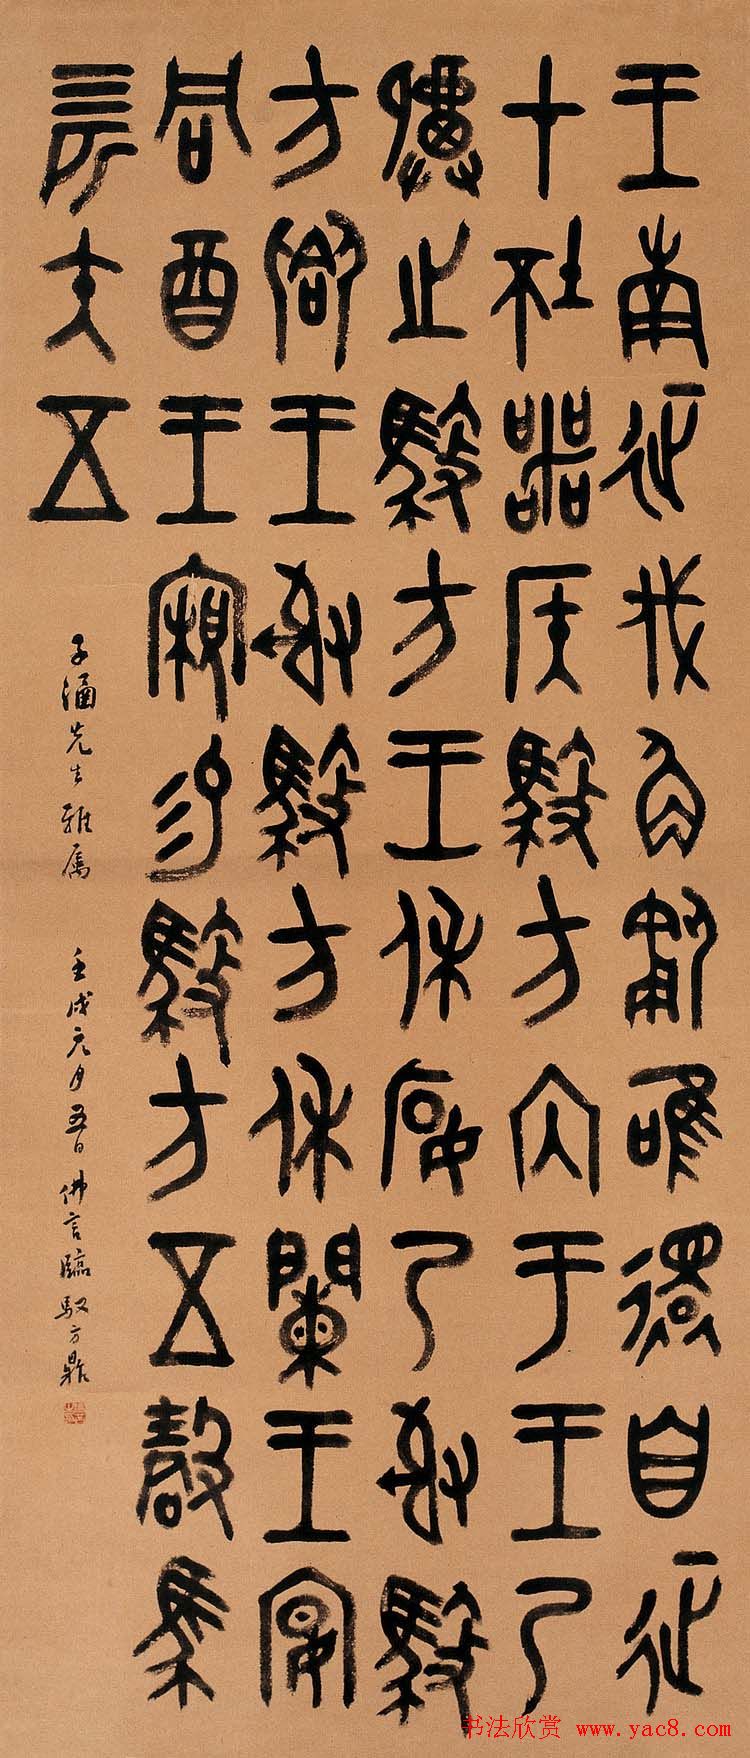 王南征伐角僪唯還自征
才坯噩侯馭方内于王乃
祼之馭方王休宴乃射馭
方卿王射馭方休闌王宴
咸酓王寴易馭方五瑴馬
四匹矢五
子涵先生雅属 壬戌元月五日佛言臨馭方鼎
书法欣赏 www.yac8.com